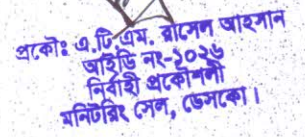 প্রকৌঃ এ.টি.এম. রাসেল আহসান
আইডি নং-১০২৬
নির্বাহী প্রকৌশলী
মনিটরিং সেল, ডেসকো।